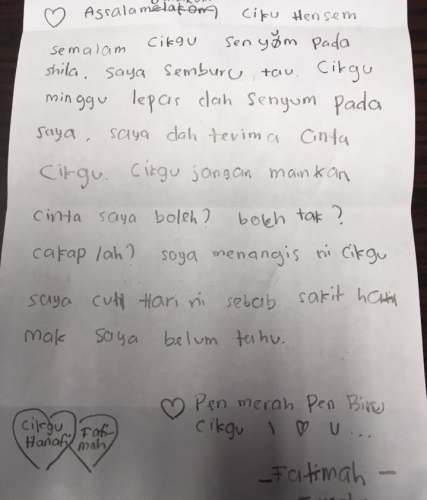 ♡ Assalamelakom Ciku Hensem
semalam Cikgu senyum pada
shila. saya semburu tau. Cikgu
minggu lepas dah senyum pada
saya. saya dah terima cinta
Cikgu. Cikgu jangan mainkan
cinta saya boleh? boleh tak?
cakap lah? saya menangis ni Cikgu
saya cuti Hari ni sebab sakit hati
mak saya belum tahu.
♡ Pen merah Pen Biru
Cikgu I ♡ U...
Cikgu Hanafi
Fati-
mah
- Fatimah -